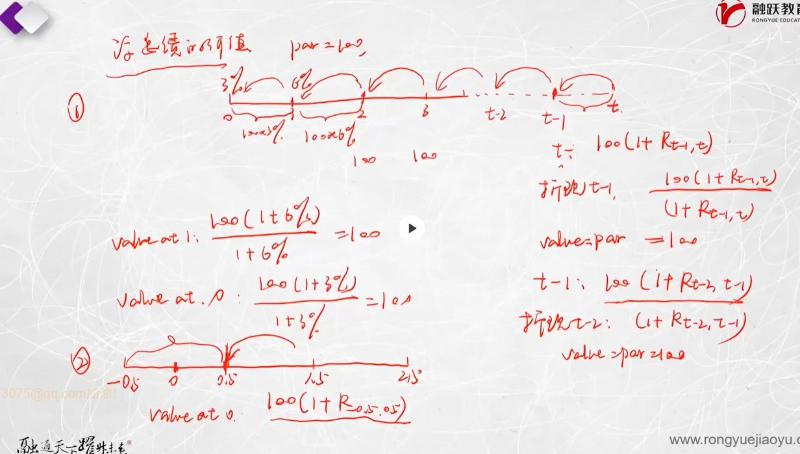 融跃教育
RONGYUE EDUCAT
浮息债的价值 par=100,
3% 6%
①
0 1 2 3 t-2 t-1 t
100×3% 100×6%
100 100
t: 100(1+R t-1,t)
折现t-1, 100(1+R t-1,t)
(1+R t-1,t)
value=par =100
value at 1: 100(1+6%) =100
1+6%
value at 0: 100(1+3%) =100
1+3%
t-1: 100(1+R t-2,t-1)
折现t-2: (1+R t-2,t-1)
value=par=100
②
-0.5 0 0.5 1.5 2.5
3075@qq.com
value at 0. 100(1+R -0.5,0.5)
融通天下 跃升未来
www.rongyuejiaoyu.c